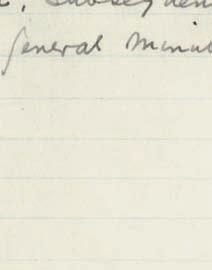 , Subsequen
General Minut